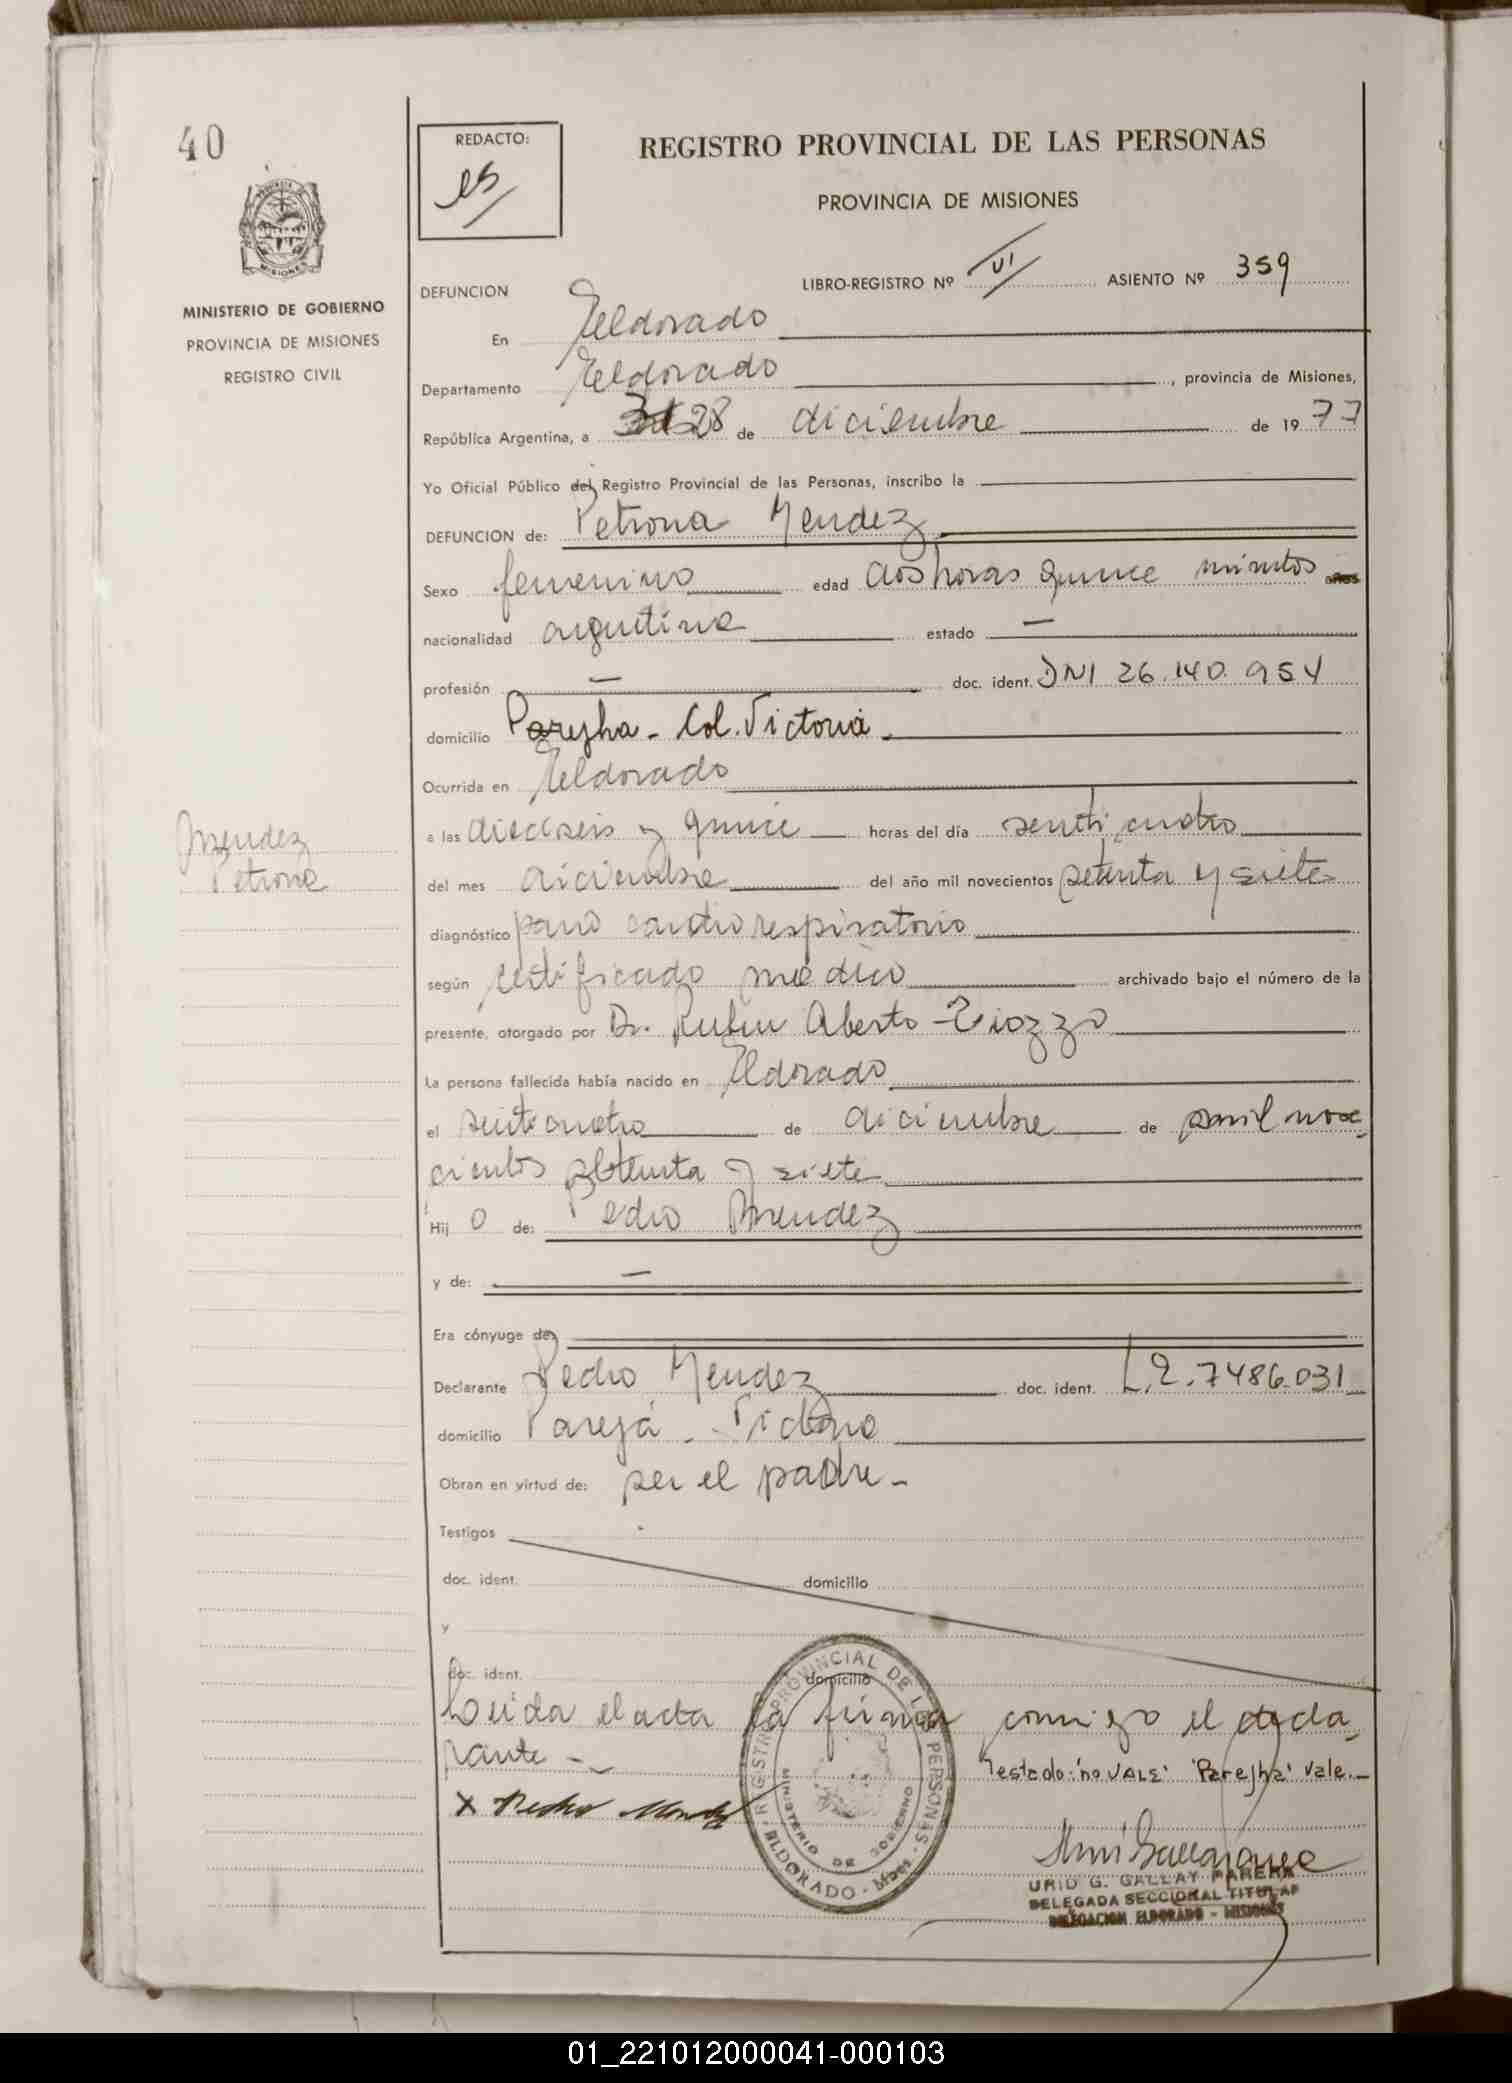 40
REDACTO:
REGISTRO PROVINCIAL DE LAS PERSONAS
PROVINCIA DE MISIONES
MISIONES
MINISTERIO DE GOBIERNO
PROVINCIA DE MISIONES
REGISTRO CIVIL
LIBRO-REGISTRO Nº VI ASIENTO Nº 359
DEFUNCION
En Eldorado
Departamento Eldorado, provincia de Misiones,
República Argentina, a 28 de diciembre de 1977
Yo Oficial Público del Registro Provincial de las Personas, inscribo la
DEFUNCION de: Petrona Mendez
Sexo femenino edad dos horas quince minutos años
nacionalidad argentina estado —
profesión — doc. ident. DNI 26.140.954
domicilio Parejha - Col. Victoria -
Ocurrida en Eldorado
a las dieciseis y quince horas del día veinticuatro
Mendez
Petrona
del mes diciembre del año mil novecientos setenta y siete
diagnóstico paro cardio respiratorio
según certificado medico archivado bajo el número de la
presente, otorgado por Dr. Ruben Alberto Tiozzo
La persona fallecida había nacido en Eldorado
el veinticuatro de diciembre de mil nove
cientos setenta y siete
Hij o de: Pedro Mendez
y de: —
Era cónyuge de
Declarante Pedro Mendez doc. ident. L.E. 7486.031
domicilio Parejá - Victoria
Obran en virtud de: ser el padre -
Testigos
doc. ident. domicilio
y
doc. ident. domicilio
Leida el acta la firma conmigo el decla
rante -
Testado: "no VALE" "Parejha" Vale. -
X Pedro Mendez
REGISTRO PROVINCIAL DE LAS PERSONAS
MINISTERIO DE GOBIERNO
ELDORADO - Mnes.
G. GALLAY PARERA
DELEGADA SECCIONAL TITULAR
DELEGACION ELDORADO - MISIONES
01_221012000041-000103